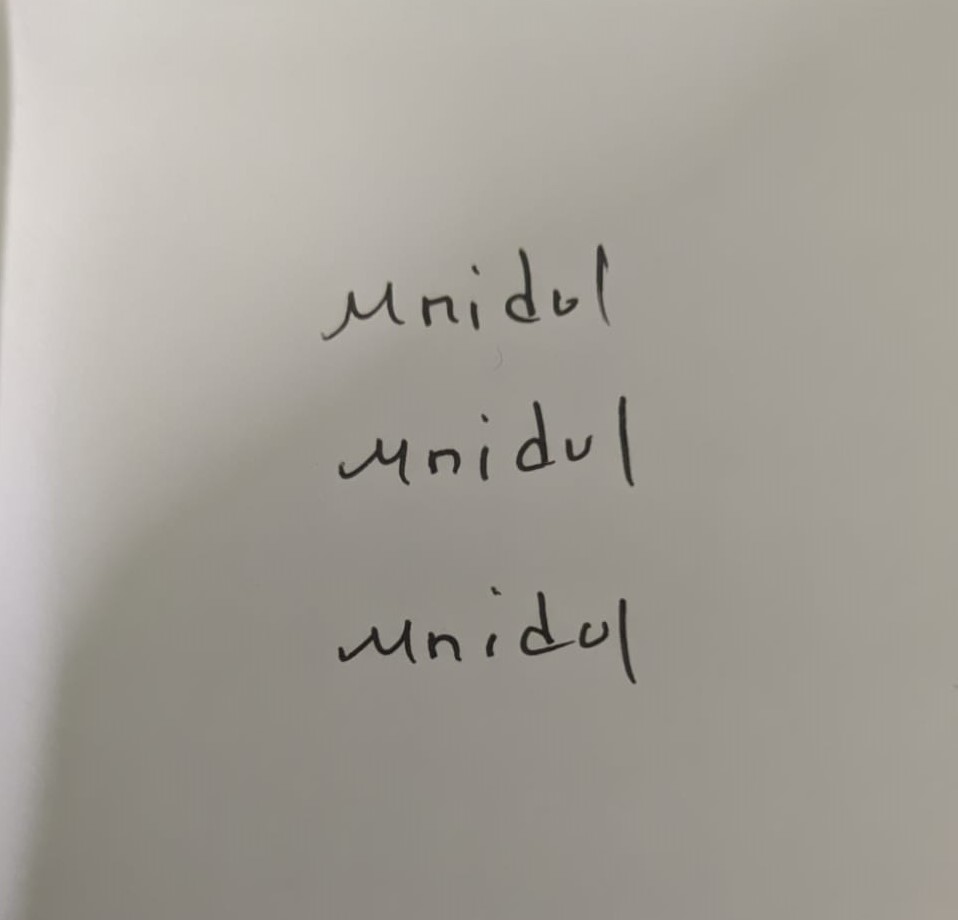 Mnidul
Mnidul
Mnidul